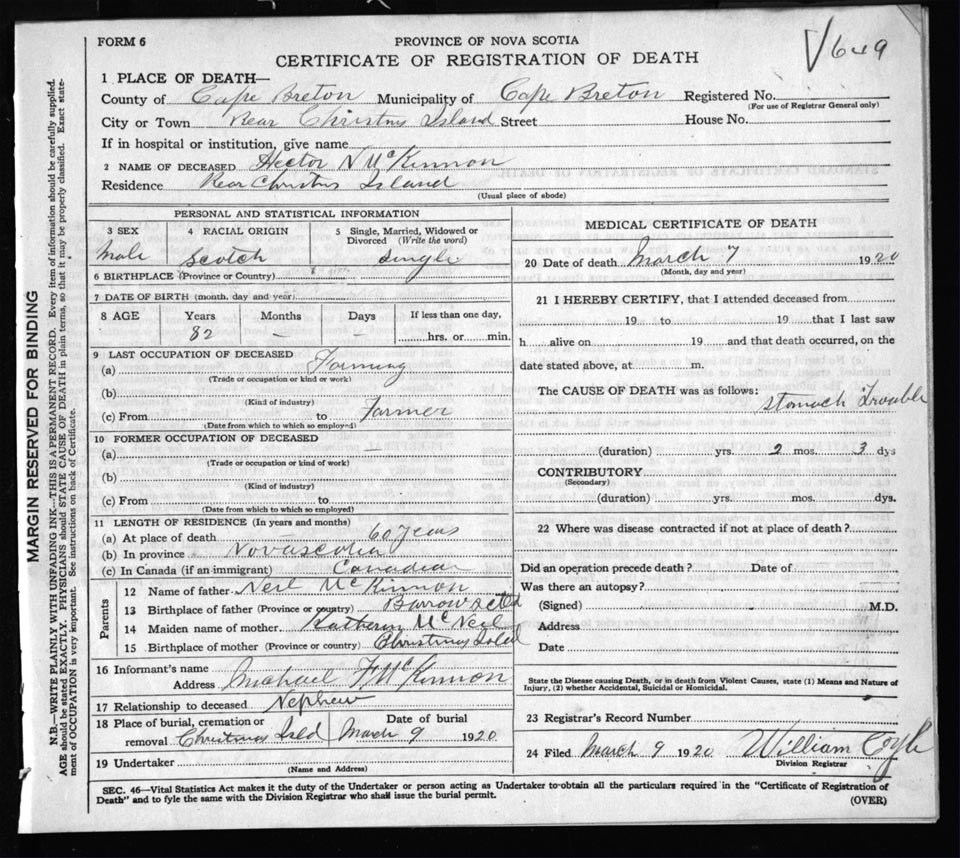 FORM 6
PROVINCE OF NOVA SCOTIA
CERTIFICATE OF REGISTRATION OF DEATH
649
1 PLACE OF DEATH—
County of Cape Breton Municipality of Cape Breton Registered No.
(For use of Registrar General only)
City or Town Rear Christms Island Street House No.
If in hospital or institution, give name
2 NAME OF DECEASED Hector N McKinnon
Residence Rear Christms Island
(Usual place of abode)
PERSONAL AND STATISTICAL INFORMATION
3 SEX 4 RACIAL ORIGIN 5 Single, Married, Widowed or Divorced (Write the word)
Male Scotch Single
6 BIRTHPLACE (Province or Country)
7 DATE OF BIRTH (month, day and year)
8 AGE Years Months Days If less than one day,
82 — — hrs. or min.
9 LAST OCCUPATION OF DECEASED
(a) Farming
(Trade or occupation or kind or work)
(b)
(Kind of industry)
(c) From to Farmer
(Date from which to which so employed)
10 FORMER OCCUPATION OF DECEASED
(a) —
(Trade or occupation or kind of work)
(b)
(Kind of industry)
(c) From to
(Date from which to which so employed)
11 LENGTH OF RESIDENCE (In years and months)
(a) At place of death 60 Years
(b) In province Novascotia
(c) In Canada (if an immigrant) Canadian
Parents
12 Name of father Neil McKinnon
13 Birthplace of father (Province or country)
14 Maiden name of mother McNeil
15 Birthplace of mother (Province or country) Christmas Isld
16 Informant's name
Address Michael F McKinnon
17 Relationship to deceased Nephew
18 Place of burial, cremation or removal Christmas Isld
Date of burial
March 9 1920
19 Undertaker
(Name and Address)
MEDICAL CERTIFICATE OF DEATH
20 Date of death March 7 1920
(Month, day and year)
21 I HEREBY CERTIFY, that I attended deceased from
19 to 19 that I last saw
h alive on 19 and that death occurred, on the
date stated above, at m.
The CAUSE OF DEATH was as follows:
Stomach Trouble
(duration) yrs. 2 mos. 3 dys
CONTRIBUTORY
(Secondary)
(duration) yrs. mos. dys.
22 Where was disease contracted if not at place of death?
Did an operation precede death? Date of
Was there an autopsy?
(Signed) M.D.
Address
Date
State the Disease causing Death, or in death from Violent Causes, state (1) Means and Nature of
Injury, (2) whether Accidental, Suicidal or Homicidal.
23 Registrar's Record Number
24 Filed March 9 1920 William Coyle
Division Registrar
SEC. 46—Vital Statistics Act makes it the duty of the Undertaker or person acting as Undertaker to obtain all the particulars required in the "Certificate of Registration of
Death" and to fyle the same with the Division Registrar who shall issue the burial permit.
(OVER)
MARGIN RESERVED FOR BINDING
N.B.—WRITE PLAINLY WITH UNFADING INK—THIS IS A PERMANENT RECORD. Every item of information should be carefully supplied.
AGE should be stated EXACTLY. PHYSICIANS should STATE CAUSE OF DEATH in plain terms, so that it may be properly classified. Exact state-
ment of OCCUPATION is very important. See instructions on back of Certificate.